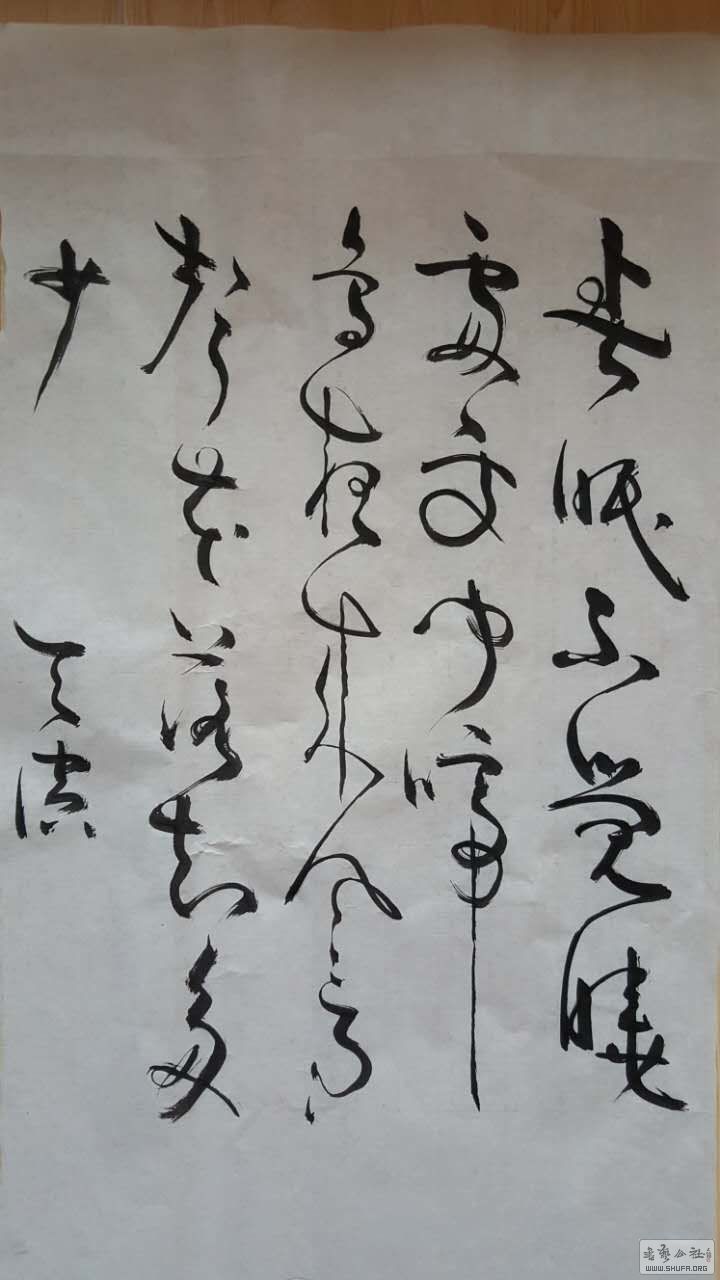 春眠不觉晓
处处闻啼
鸟夜来风雨
声花落知多
少
書藝公社
WWW.SHUFA.ORG